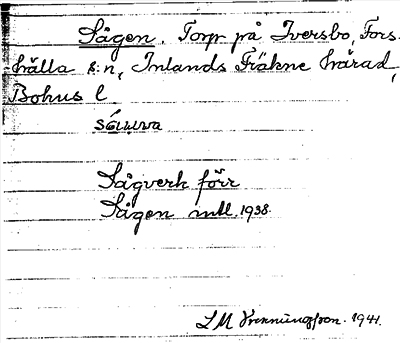 Sågen. Torp på Iversbo, Fors-
hälla s:n, Inlands Fräkne härad,
Bohus l
Sågverk förr
Sågen mtl. 1938.
LM 1941.